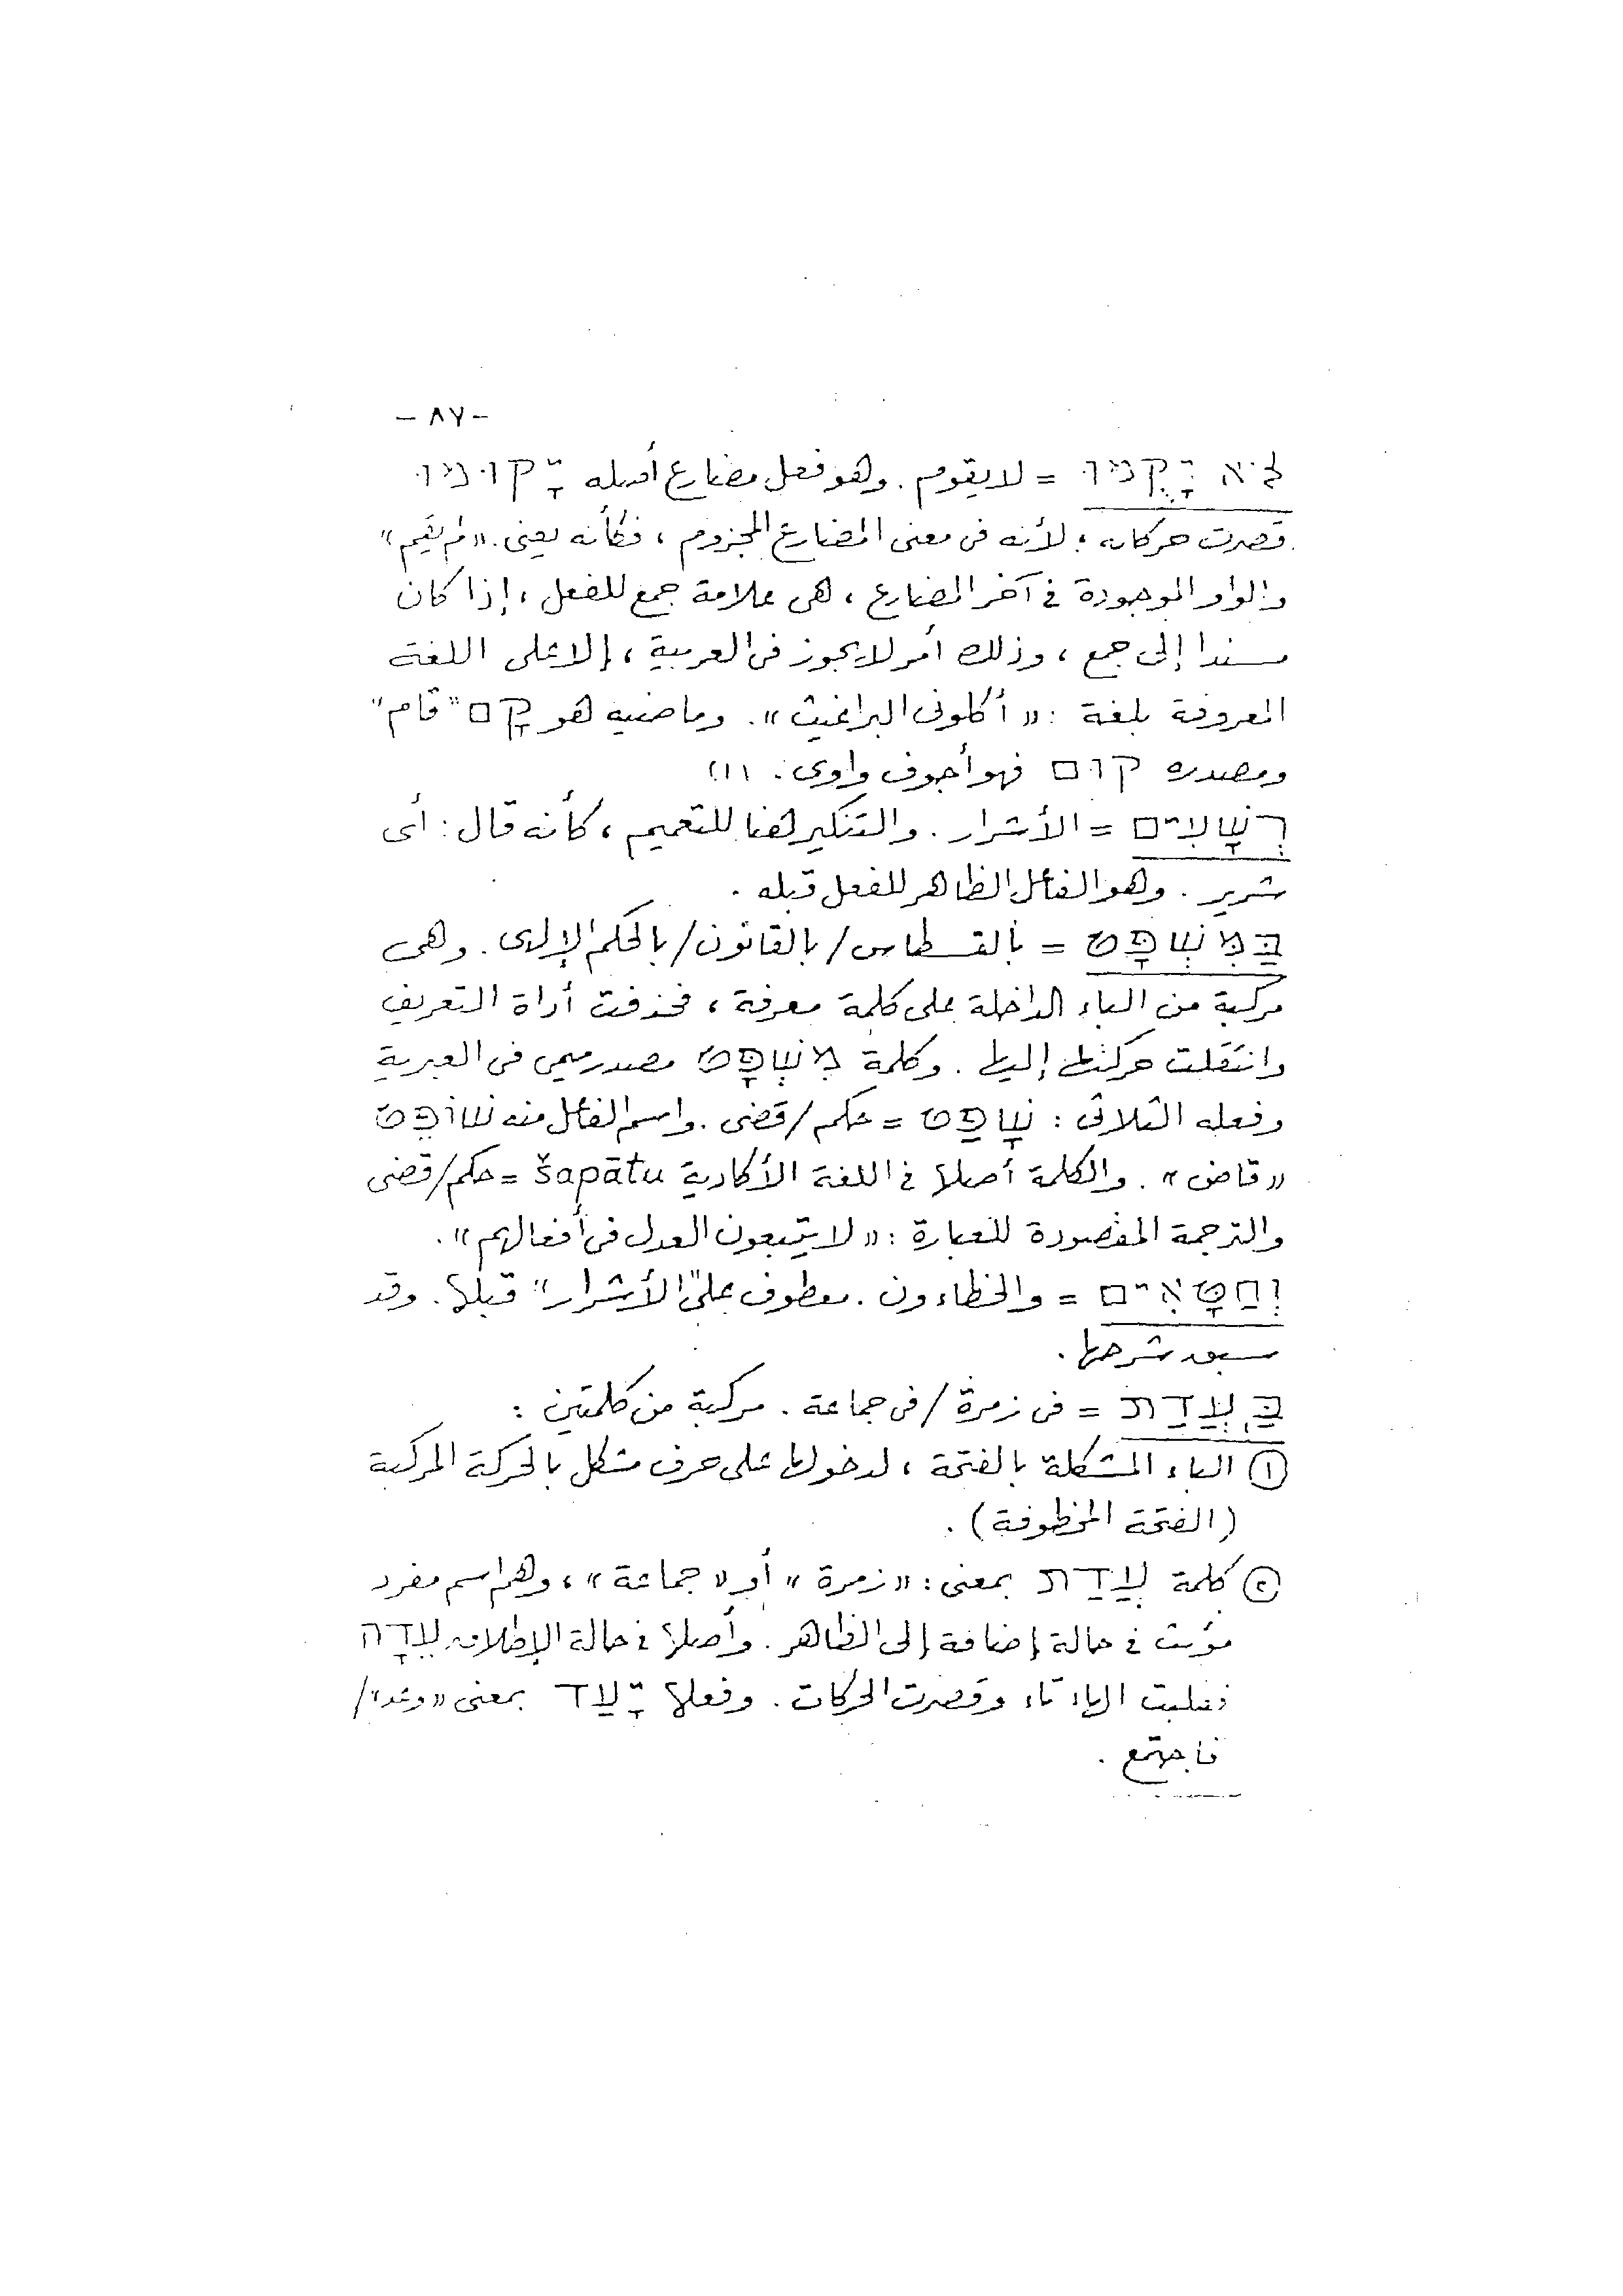 - ٨٧ -
לֹא יָקֻמוּ = لا يقوم . وهو فعل مضارع أصله יָקוּמוּ
قصرت حركاته ؛ لأنه فى معنى المضارع المجزوم ، فكأنه يعنى : « لم يقم »
والواو الموجودة فى آخر المضارع ، هى علامة جمع للفعل ، إذا كان
مسندا إلى جمع ، وذلك أمر لا يجوز فى العربية ، إلا على اللغة
المعروفة بلغة : « أكلونى البراغيث » . وماضيه هو קָם "قام"
ومصدره קוּם فهو أجوف واوى . (١)
רְשָׁעִים = الأشرار . والتنكير هنا للتعميم ، كأنه قال : أى
شرير . وهو الفاعل الظاهر للفعل قبله .
בַּמִּשְׁפָּט = بالقسطاس / بالقانون / بالحكم الإلهى . وهى
مركبة من الباء الداخلة على كلمة معرفة ، فحذفت أداة التعريف
وانتقلت حركتها إليها . وكلمة מִשְׁפָּט مصدر ميمى فى العبرية
وفعله الثلاثى : שָׁפַט = حكم / قضى . واسم الفاعل منه שׁוֹפֵט
« قاض » . والكلمة أصلها فى اللغة الأكادية šapātu = حكم / قضى
والترجمة المقصودة للعبارة : « لا يتبعون العدل فى أفعالهم » .
וְחַטָּאִים = والخطاءون . معطوف على "الأشرار" قبلها . وقد
سبق شرحها .
בַּעֲדַת = فى زمرة / فى جماعة . مركبة من كلمتين :
① الباء المشكلة بالفتحة ، لدخولها على حرف مشكل بالحركة المركبة
(الفتحة المخطوفة) .
② كلمة עֲדַת بمعنى : « زمرة » أو « جماعة » ، وهى اسم مفرد
مؤنث فى حالة إضافة إلى الظاهر . وأصلها فى حالة الإطلاق עֵדָה
فقلبت الهاء تاء وقصرت الحركات . وفعلها יָעַד بمعنى « وعد » /
فاجتمع .